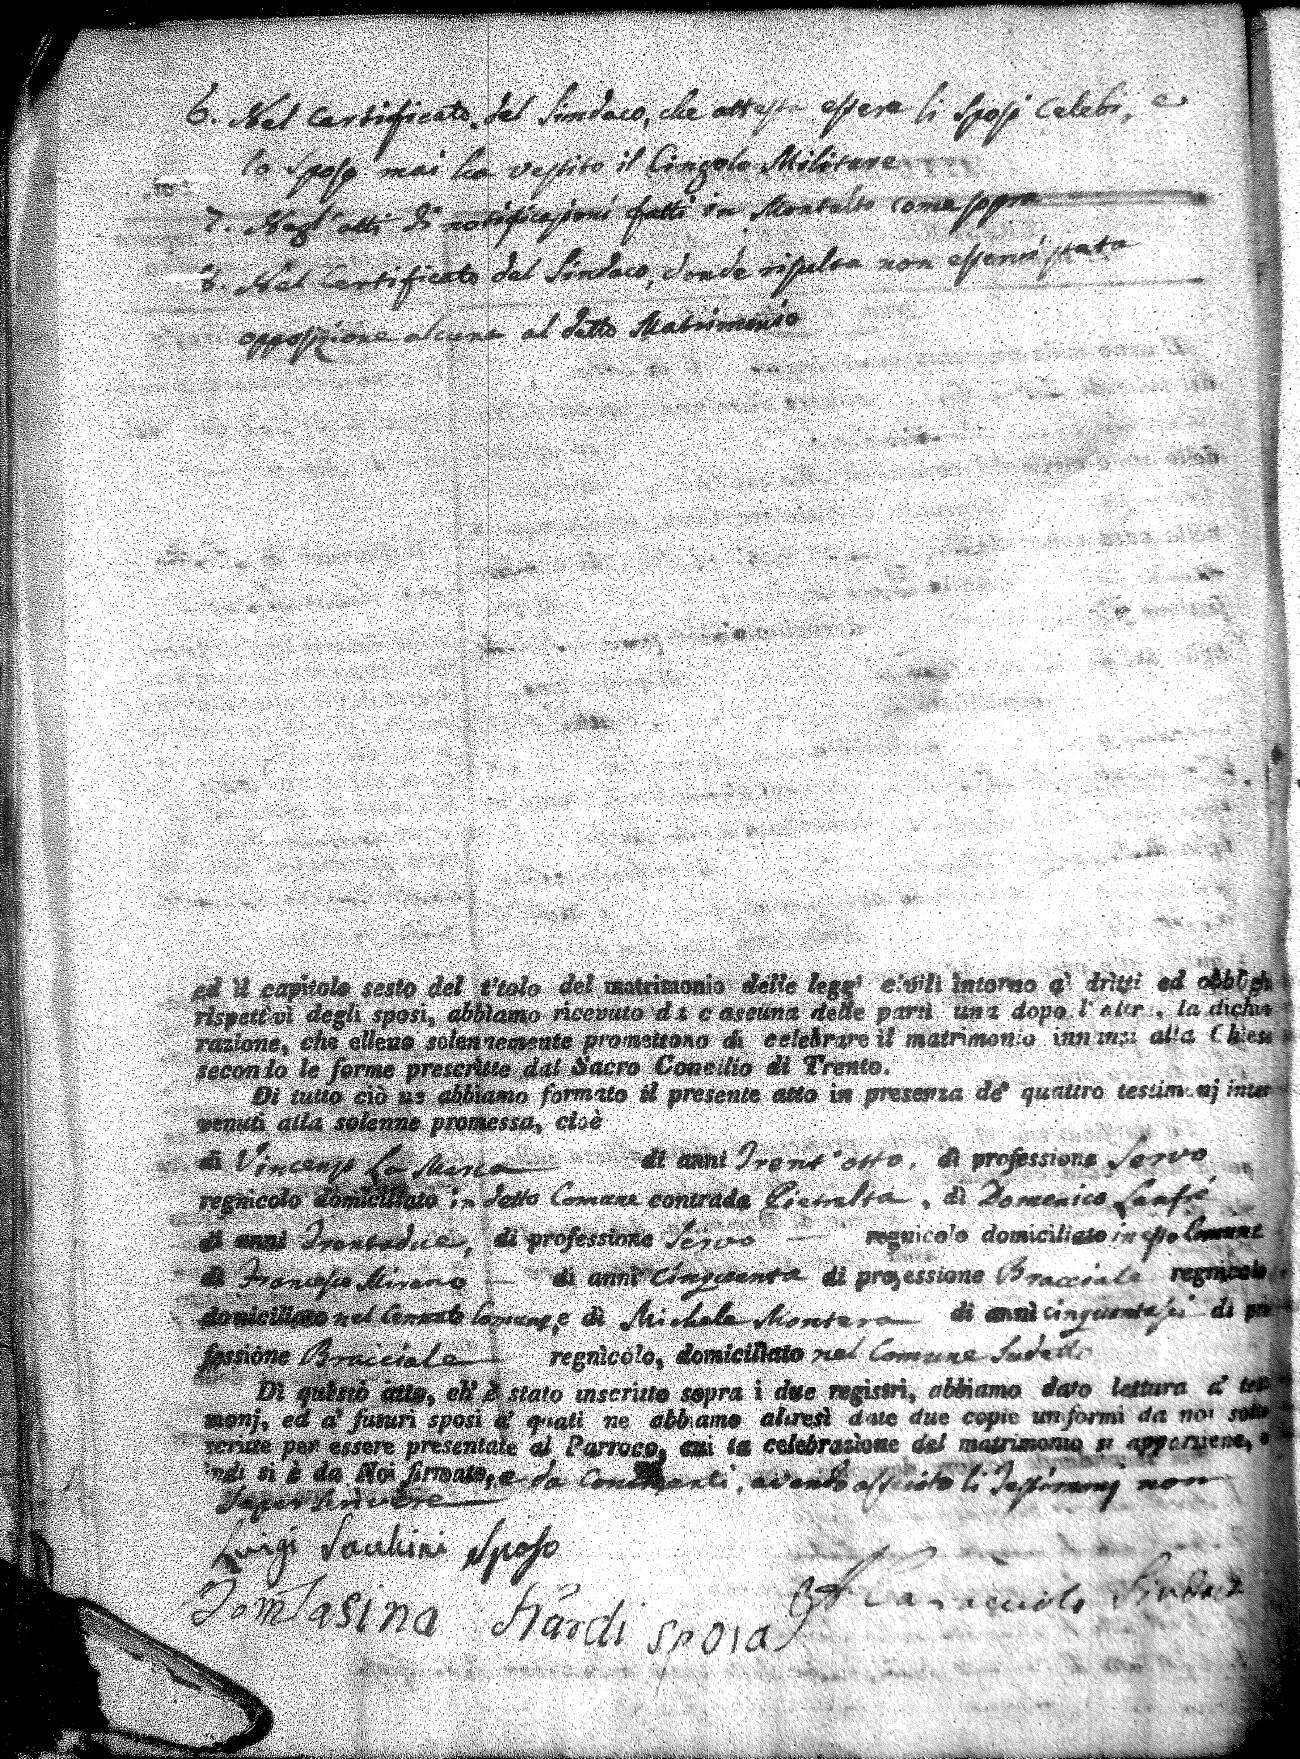 6. Nel Certificato del Sindaco, che attesta essere li Sposi celebi, e
lo Sposo mai ha vestito il Cingolo Militare
7. Negl'atti di notificazioni fatti in Montalto come sopra
8. Nel Certificato del Sindaco, donde risulta non esservi stata
opposizione alcuna al detto Matrimonio
ed il capitolo sesto del titolo del matrimonio delle leggi civili intorno a' dritti ed obblighi
rispettivi degli sposi, abbiamo ricevuto da ciascuna delle parti una dopo l'altra, la dichia-
razione, che elleno solennemente promettono di celebrare il matrimonio innanzi alla Chiesa
secondo le forme prescritte dal Sacro Concilio di Trento.
Di tutto ciò ne abbiamo formato il presente atto in presenza de' quattro testimonj inter-
venuti alla solenne promessa, cioè
di Vincenzo La Maria di anni Trent'otto, di professione Servo
regnicolo domiciliato in detto Comune contrada Pietralta, di Domenico
di anni Trentadue, di professione Servo regnicolo domiciliato in esso Comune
di Francesco Mirano di anni cinquanta di professione Bracciale regnicolo
domiciliato nel Comune, e di Michele Montera di anni cinquantasei di pro-
fessione Bracciale regnicolo, domiciliato nel Comune sudetto
Di questo atto, ch' è stato inscritto sopra i due registri, abbiamo dato lettura a' testi-
monj, ed a' futuri sposi a' quali ne abbiamo altresì date due copie uniformi da noi sotto-
scritte per essere presentate al Parroco, cui la celebrazione del matrimonio si appartiene, e
indi si è da Noi firmato, e da Contraenti, avendo asserito li Testimonj non
saper scrivere
Luigi Sacchini Sposo
Caracciolo Sindaco
Tommasina Nardi sposa